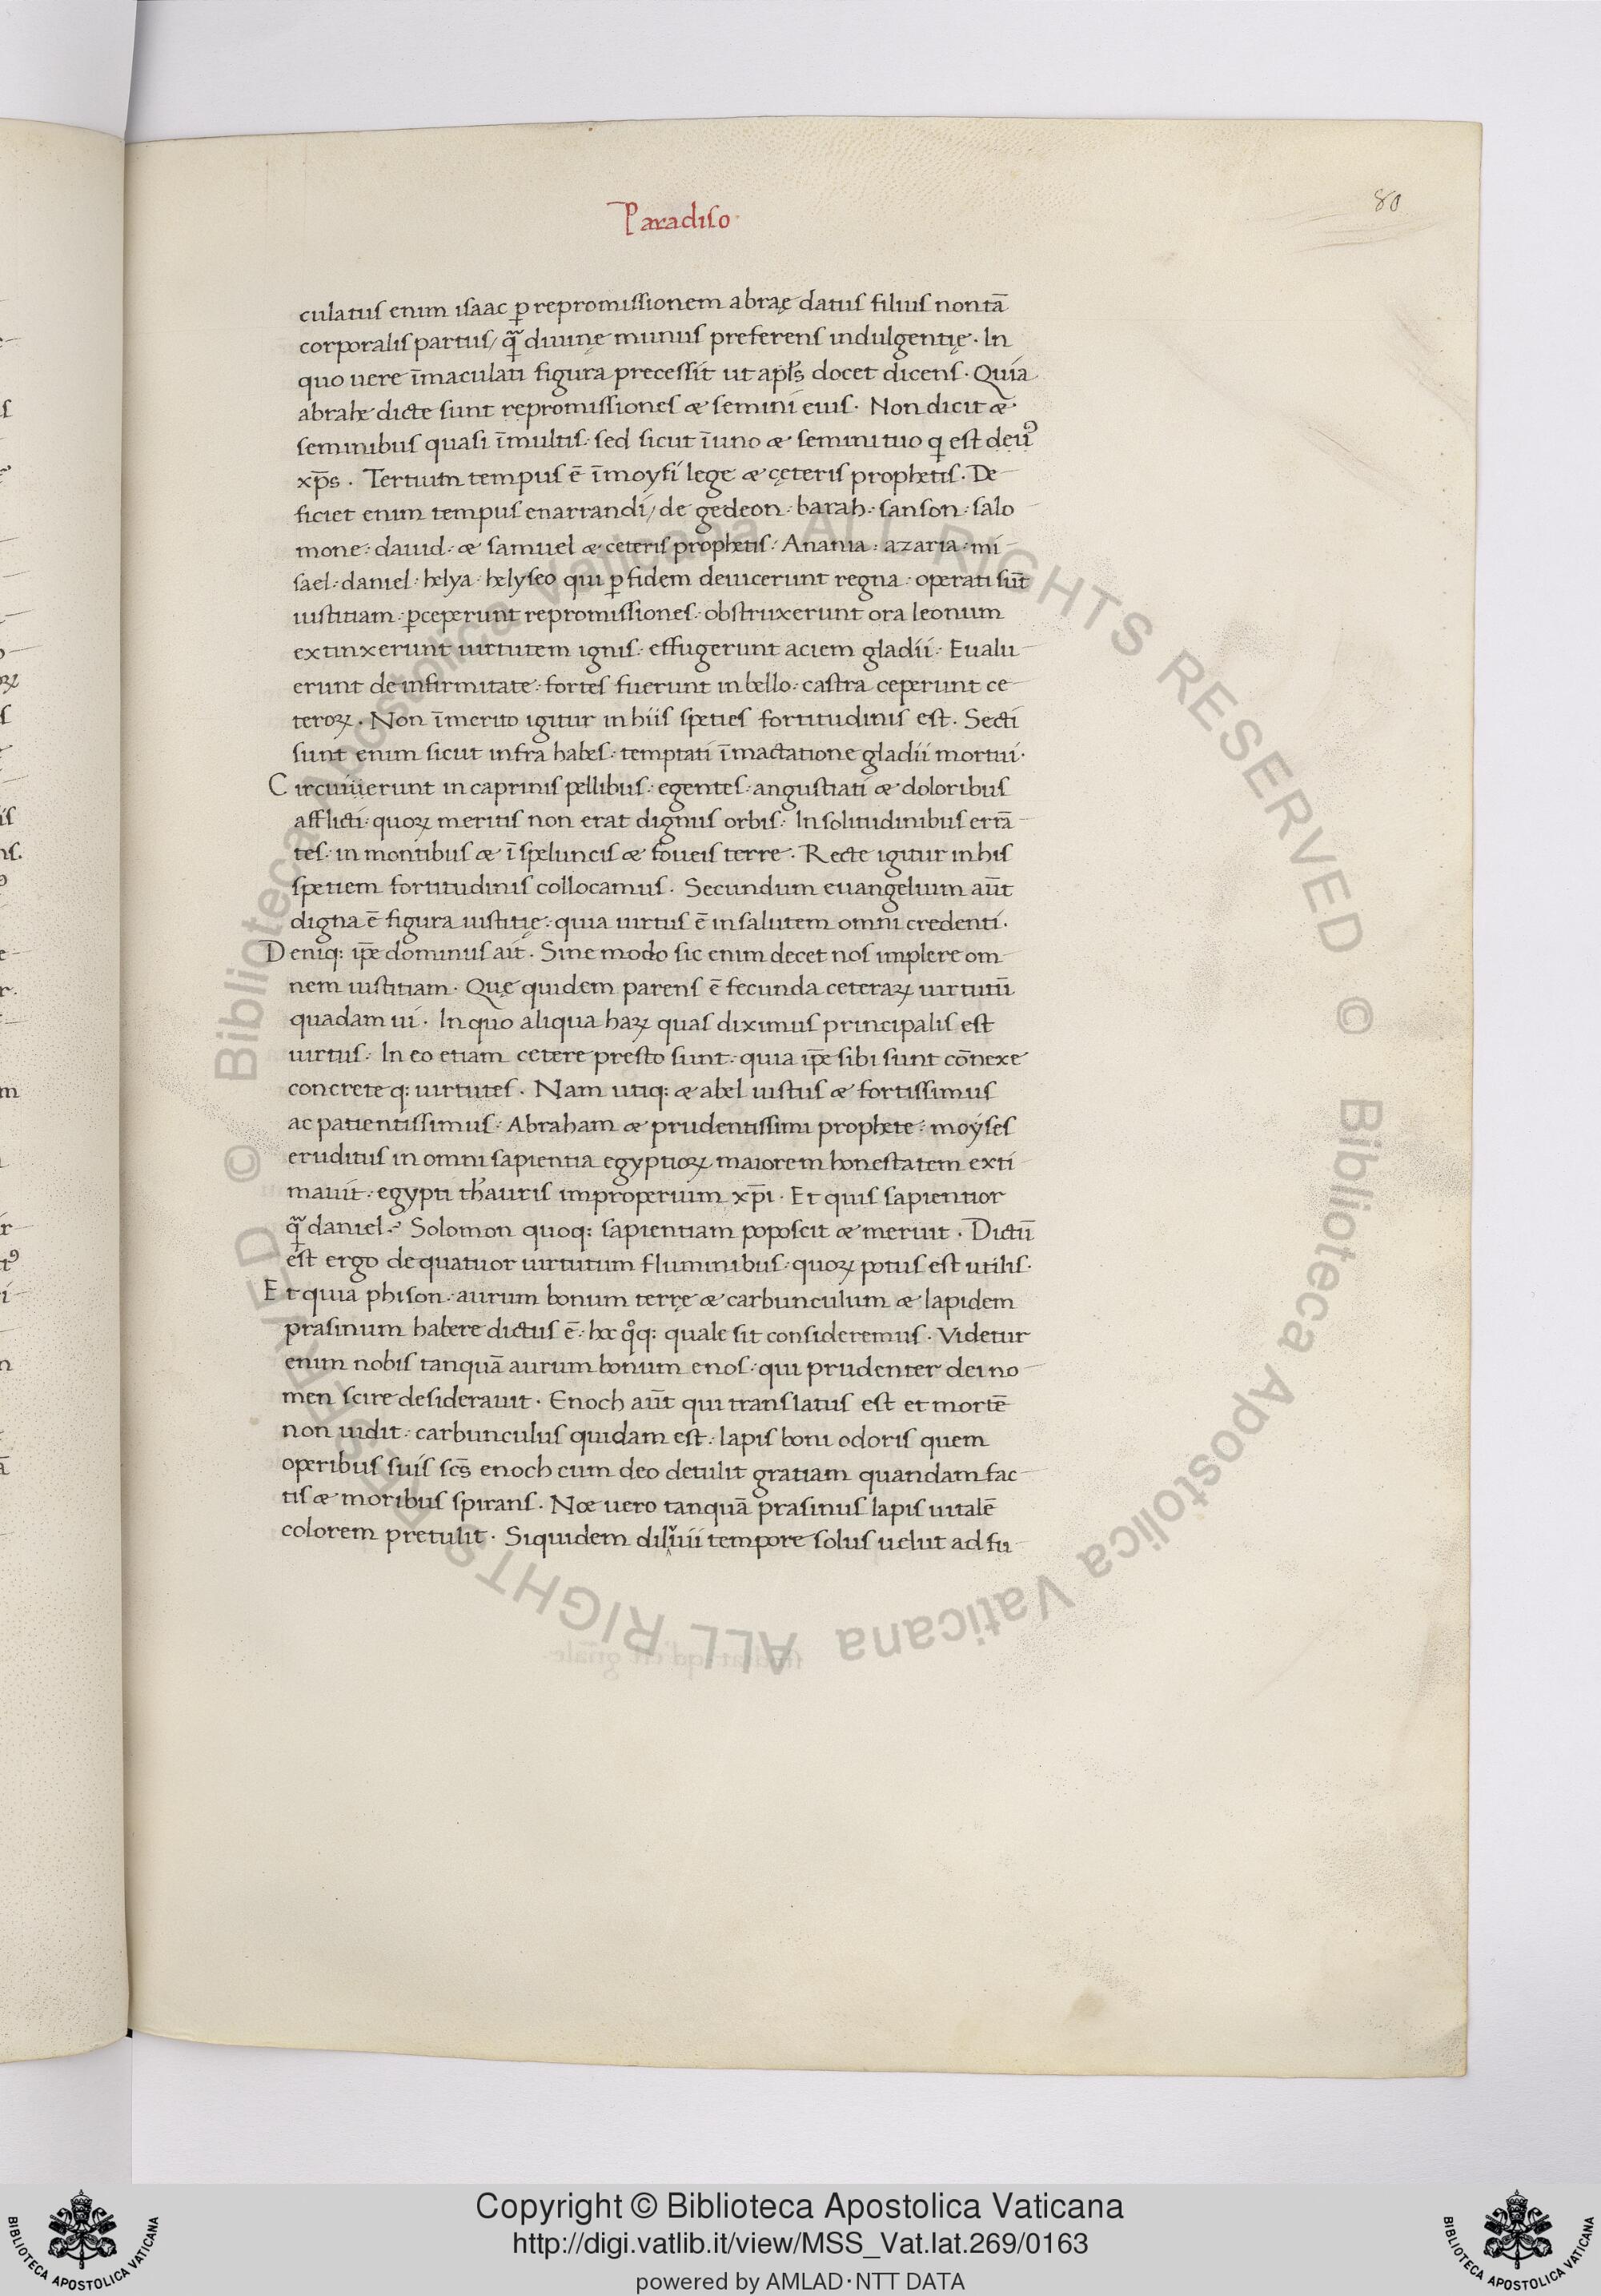 80
Paradiso
culatus enim isaac ꝑ repromissionem abraę datus filius non tā
corporalis partus / qᷓ diuinę munus preferens indulgentię · In
quo uere īmaculati figura precessit ut apl̄s docet dicens · Quia
abrahe dicte sunt repromissiones & semini eius · Non dicit &
seminibus quasi ī multis · sed sicut ī uno & semini tuo q est
xp̄s · Tertium tempus ē ī moysi lege & cęteris prophetis · De
ficiet enim tempus enarrandi / de gedeon · barah · sanson · salo
mone · dauid · & samuel & ceteris prophetis · Anania · azaria · mi
sael · daniel · helya · helyseo qui ꝑ fidem deuicerunt regna · operati sūt
iustitiam · ꝑceperunt repromissiones · obstruxerunt ora leonum
extinxerunt uirtutem ignis · effugerunt aciem gladii · Eualu
erunt de infirmitate · fortes fuerunt in bello · castra ceperunt ce
teroꝝ · Non īmerito igitur in hiis speties fortitudinis est · Secti
sunt enim sicut infra habes · temptati ī mactatione gladii mortui ·
Circuiuerunt in caprinis pellibus · egentes · angustiati & doloribus
afflicti · quoꝝ meritis non erat dignus orbis · In solitudinibus errā
tes · in montibus & ī speluncis & foueis terre · Recte igitur in his
spetiem fortitudinis collocamus · Secundum euangelium aūt
digna ē figura iustitię · quia uirtus ē in salutem omni credenti ·
Deniq: ip̄e dominus ait · Sine modo sic enim decet nos implere om
nem iustitiam · Quę quidem parens ē fecunda ceteraꝝ uirtutū
quadam ui · In quo aliqua haꝝ quas diximus principalis est
uirtus · In eo etiam cetere presto sunt · quia ip̄e sibi sunt cōnexe
concrete q: uirtutes · Nam utiq: & abel iustus & fortissimus
ac patientissimus · Abraham & prudentissimi prophete · moyses
eruditus in omni sapientia egyptioꝝ maiorem honestatem exti
mauit · egypti th̄auris improperium xp̄i · Et quis sapientior
qᷓ daniel · Solomon quoq: sapientiam poposcit & meruit · Dictū
est ergo de quatuor uirtutum fluminibus · quoꝝ potus est utilis ·
Et quia phison · aurum bonum terrę & carbunculum & lapidem
prasinum habere dictus ē · hoc qͦq: quale sit consideremus · Videtur
enim nobis tanquā aurum bonum enos · qui prudenter dei no
men scire desiderauit · Enoch aūt qui translatus est et mortē
non uidit · carbunculus quidam est · lapis boni odoris quem
operibus suis sc̄s enoch cum deo detulit gratiam quandam fac
tis & moribus spirans · Noe uero tanquā prasinus lapis uitalē
colorem pretulit · Siquidem diluuii tempore solus uelut ad fu
© Biblioteca Apostolica Vaticana ALL RIGHTS RESERVED © Biblioteca Apostolica Vaticana ALL RIGHTS RESERVED
Copyright © Biblioteca Apostolica Vaticana
http://digi.vatlib.it/view/MSS_Vat.lat.269/0163
powered by AMLAD·NTT DATA
BIBLIOTECA APOSTOLICA VATICANA
BIBLIOTECA APOSTOLICA VATICANA